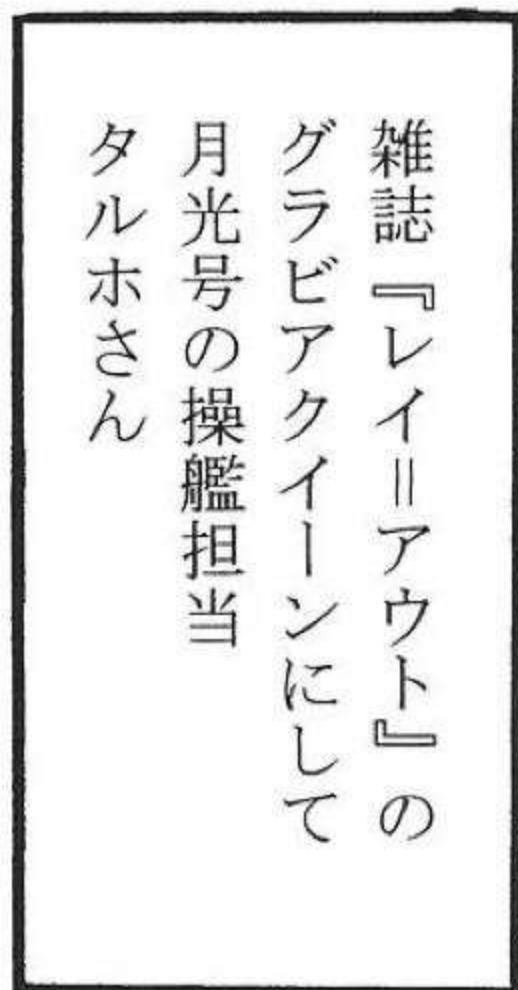 雑誌『レイ＝アウト』の
グラビアクイーンにして
月光号の操艦担当
タルホさん